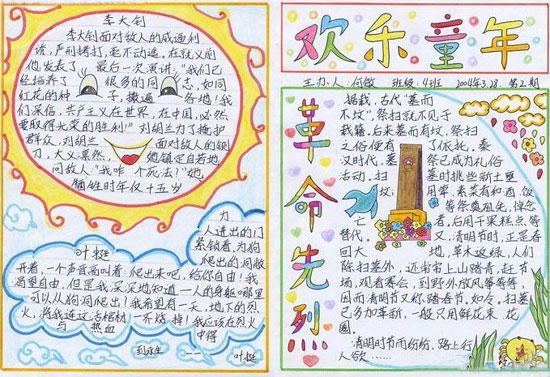 李大钊
李大钊面对敌人的威逼利
诱，严刑拷打，毫不动遥。在就义前
他发表了 最后一次演讲："我们已
经培养了 很多的同志，如同
红花的种 子，撒遍 各地！我
们深信，共产主义在世界，在中国，必然
要取得光荣的胜利！"刘胡兰为了掩护
群众，刘胡兰 面对敌人的铡
刀，大义凛然， 她镇定自若地
问敌人："我咋 个死法？"她
牺牲时年仅十五岁
叶挺
为
人进出的门
紧锁着，为狗
爬出的洞敞
开着，一个声音高叫着：爬出来吧，给你自由！我
渴望自由，但是我深深地知道一人的身躯哪里
可以从狗洞爬出！我希望有一天，地下的烈
火，将我连这活棺材 一齐烧掉！我应该在烈火
与 热血 中得
到永生 —— 叶挺
欢乐童年
主办人：何 班级：4班 2004年3.28 第2期
革命先烈
据载，古代"墓而
不坟"，祭扫就不见于
载籍。后来墓而有坟，祭扫
之俗便有 了依托。秦
汉时代，墓 祭已成为礼俗
活动，扫 墓时挑些新土
坟， 用
亡 者，
替代。 后用干果糕点等
又 清明时节，正是春
回大 地，草木返绿，人们
除扫墓外，还常常上山踏青，赶节
场，观看赛会，到野外放风筝等等，
因而清明节又称踏春节。如今，扫墓
已多加革新，一般只用鲜花束、花
圈。
清明时节雨纷纷，路上行
人欲……